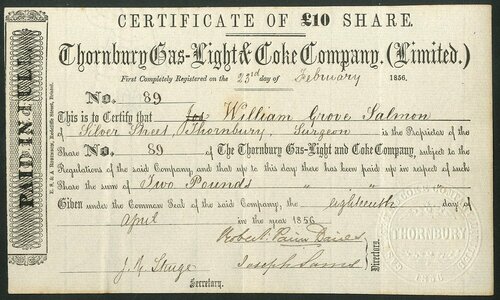 CERTIFICATE OF £10 SHARE.
Thornbury Gas-Light & Coke Company. (Limited.)
First Completely Registered on the 23rd day of February 1856.
No. 89
This is to Certify that William Grove Salmon
of Silver Street Thornbury, Surgeon is the Proprietor of the
Share No. 89 of The Thornbury Gas-Light and Coke Company, subject to the
Regulations of the said Company, and that up to this day there has been paid up in respect of such
Share the sum of Two Pounds " "
Given under the Common Seal of the said Company, the eighteenth day of
April in the year 1856
Robert
J. Y. Sturge Joseph
Secretary.
Directors.
PAID IN FULL
THORNBURY
1856